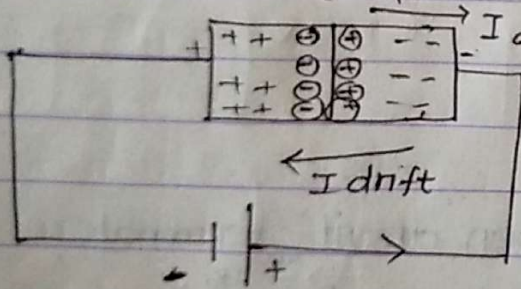 I
+ + + ⊖ ⊕ - - -
⊖ ⊕ - -
+ + ⊖ ⊕
+ + ⊖ ⊕ - -
I drift
- +